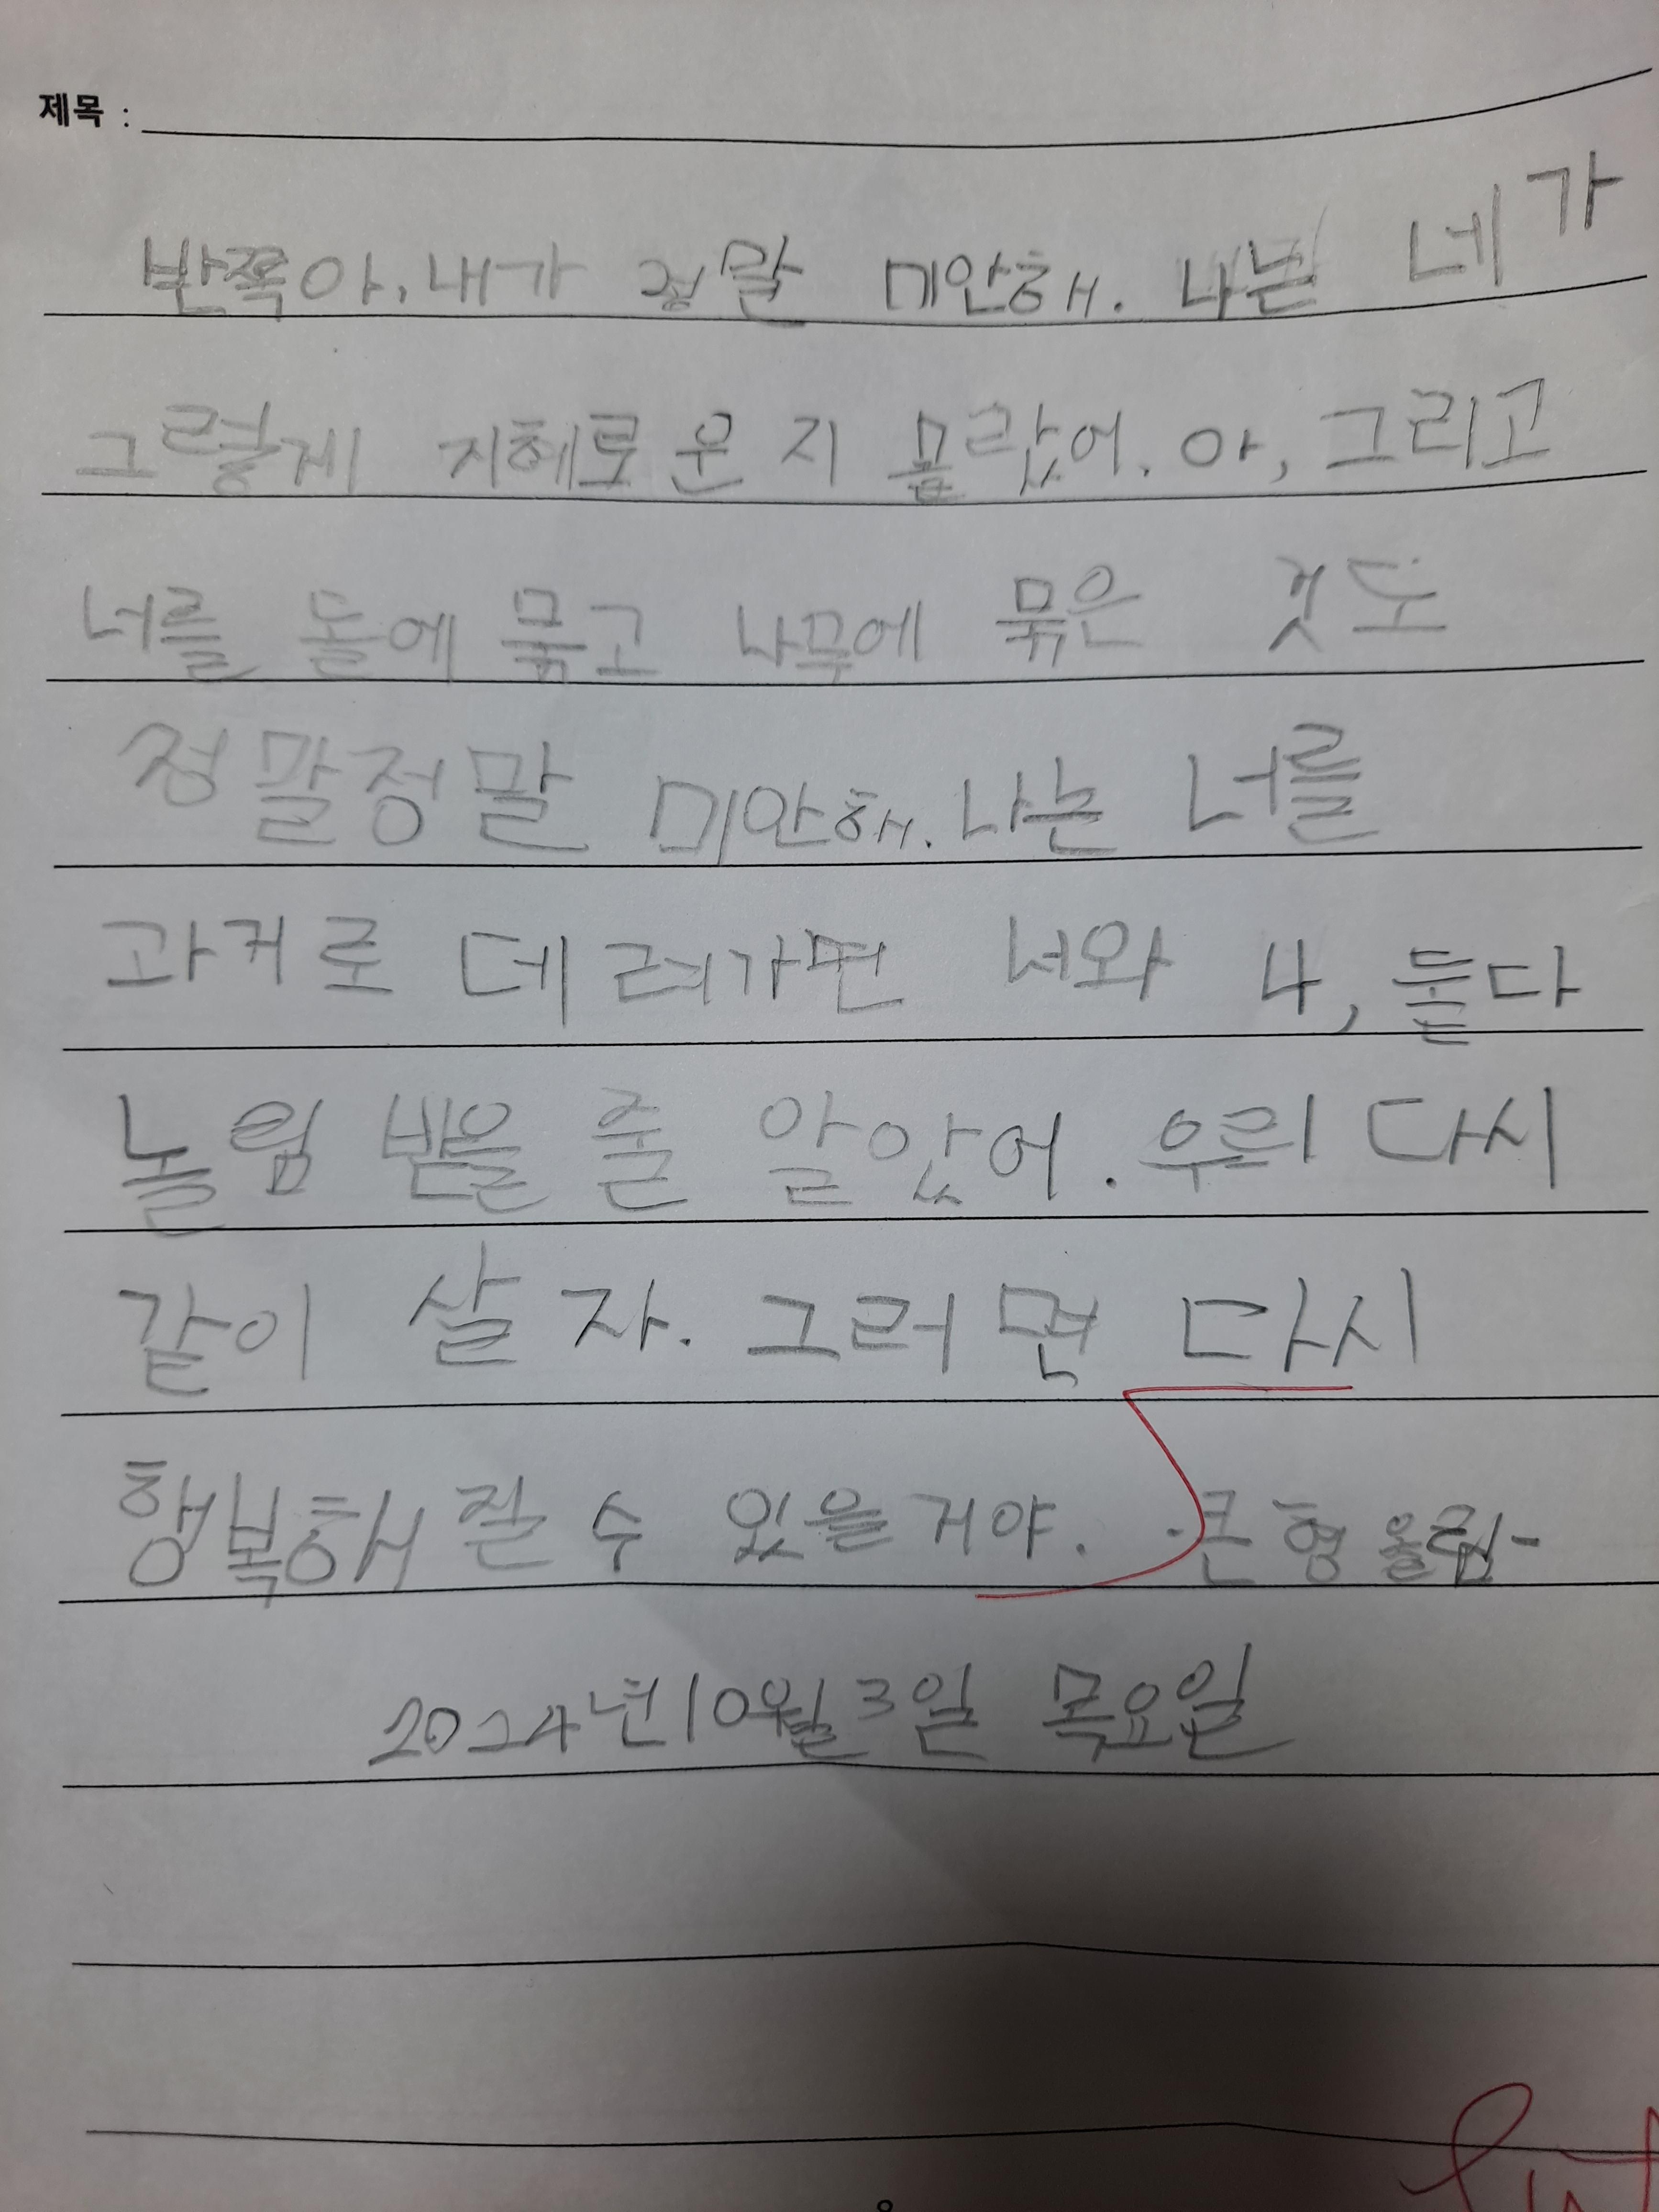 제목 :
반쪽아. 내가 정말 미안해. 나는 네가
그렇게 지혜로운 지 몰랐어. 아, 그리고
너를 돌에 묶고 나무에 묶은 것도
정말정말 미안해. 나는 너를
과거로 데려가면 너와 나, 둘다
놀림 받을 줄 알았어. 우리 다시
같이 살자. 그러면 다시
행복해질 수 있을거야. -큰 형 올림-
2024년 10월 3일 목요일